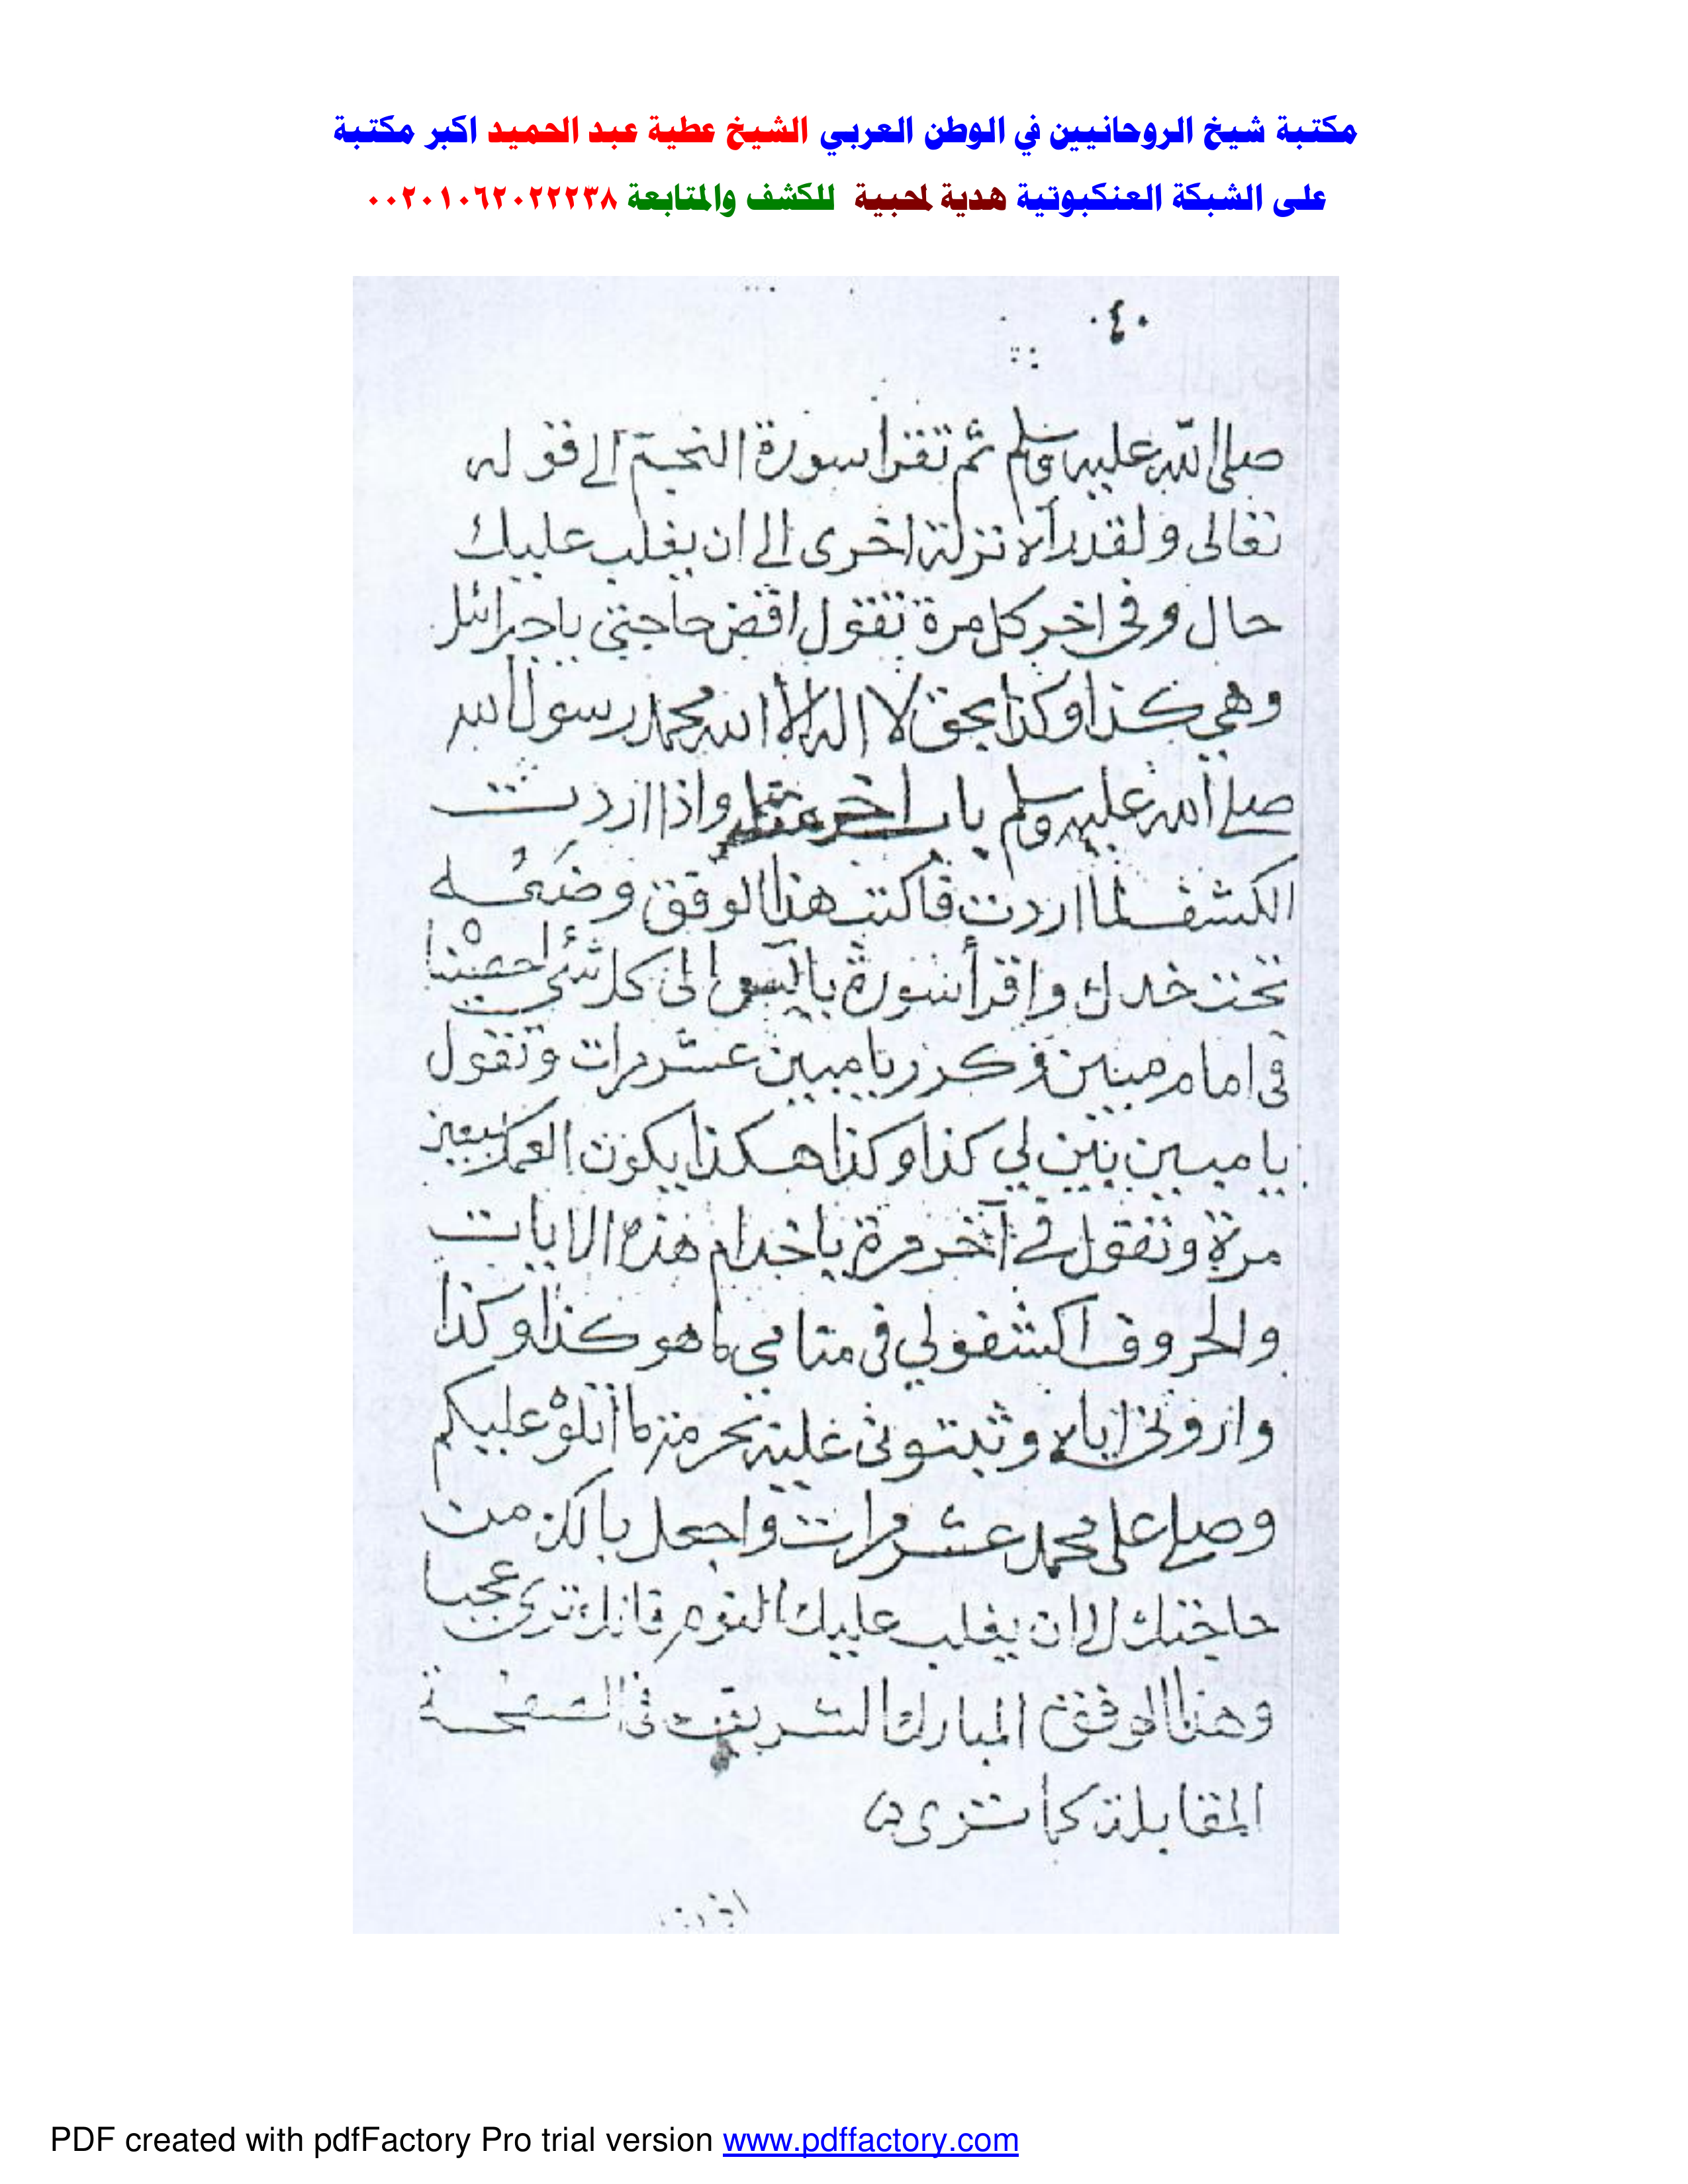 مكتبة شيخ الروحانيين في الوطن العربي الشيخ عطية عبد الحميد اكبر مكتبة
على الشبكة العنكبوتية هدية لمحبية للكشف والمتابعة ٠٠٢٠١٠٦٢٠٢٢٢٣٨
٠٤٠
صلى الله عليه وسلم ثم تقرأ سورة النجم الى قوله
تعالى ولقد رآه نزلة اخرى الى ان يغلب عليك
حال وفي اخر كل مرة تقول اقض حاجتي يا جبرائيل
وهي كذا وكذا بحق لا اله الا الله محمد رسول الله
صلى الله عليه وسلم باب اخر واذا اردت
الكشف لما اردت فاكتب هذا الوفق وضعه
تحت خدك واقرأ سورة الى كل شئ احصيناه
في امام مبين وكرر يا مبين عشر مرات وتقول
يا مبين بين لي كذا وكذا هكذا يكون العمل
مرة وتقول في آخر مرة يا خدام هذه الايات
والحروف اكشفولي في منامي ما هو كذا وكذا
واروني اياه وثبتوني عليه بحرمة ما أتلوه عليكم
وصلي على محمد عشر مرات واجعل بالك من
حاجتك الى ان يغلب عليك النوم فانك ترى عجبا
وهذا الوفق المبارك الشريف في الصفحة
المقابلة كما ترى
PDF created with pdfFactory Pro trial version www.pdffactory.com